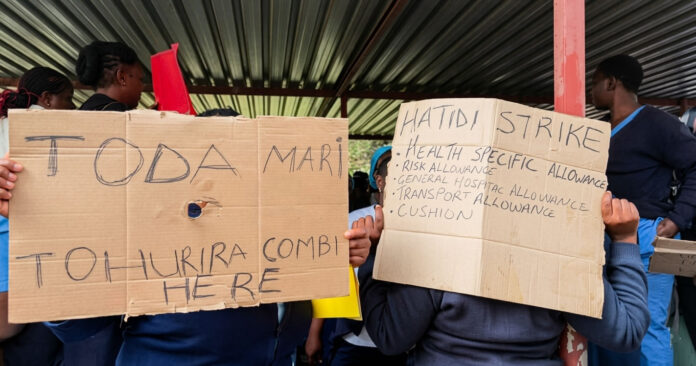 TODA MARI
TOHURIRA COMBI
HERE
HATIDI STRIKE
• HEALTH SPECIFIC ALLOWANCE
• RISK ALLOWANCE
• GENERAL HOSPITAL ALLOWANCE
• TRANSPORT ALLOWANCE
• CUSHION